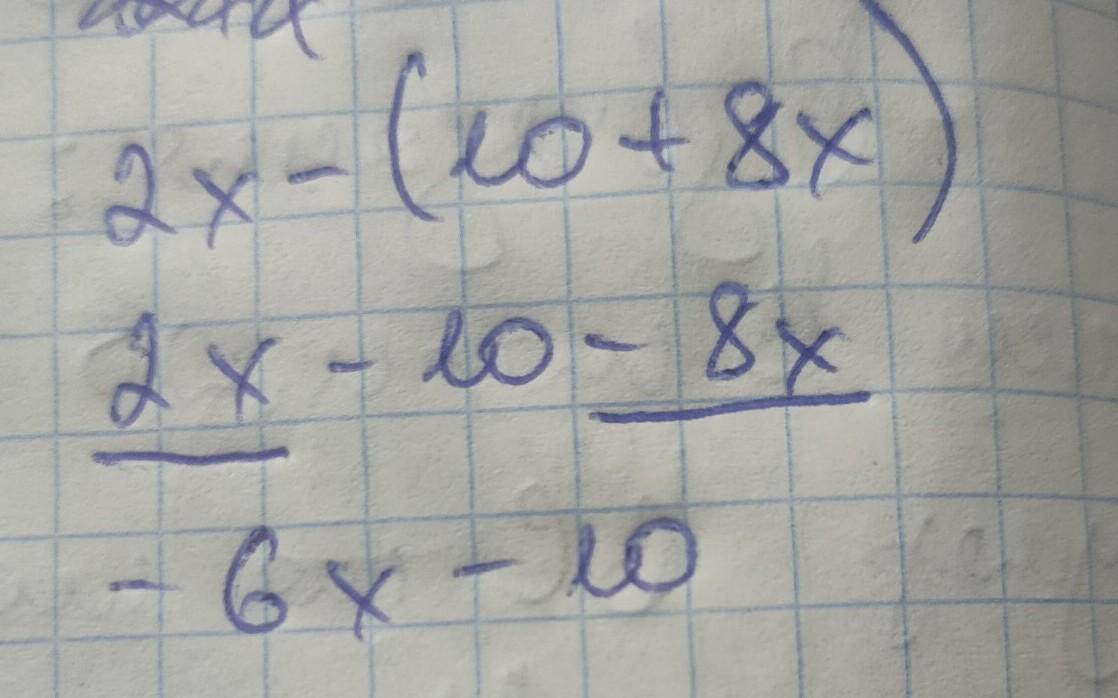 2x - (10 + 8x)
2x - 10 - 8x
- 6x - 10